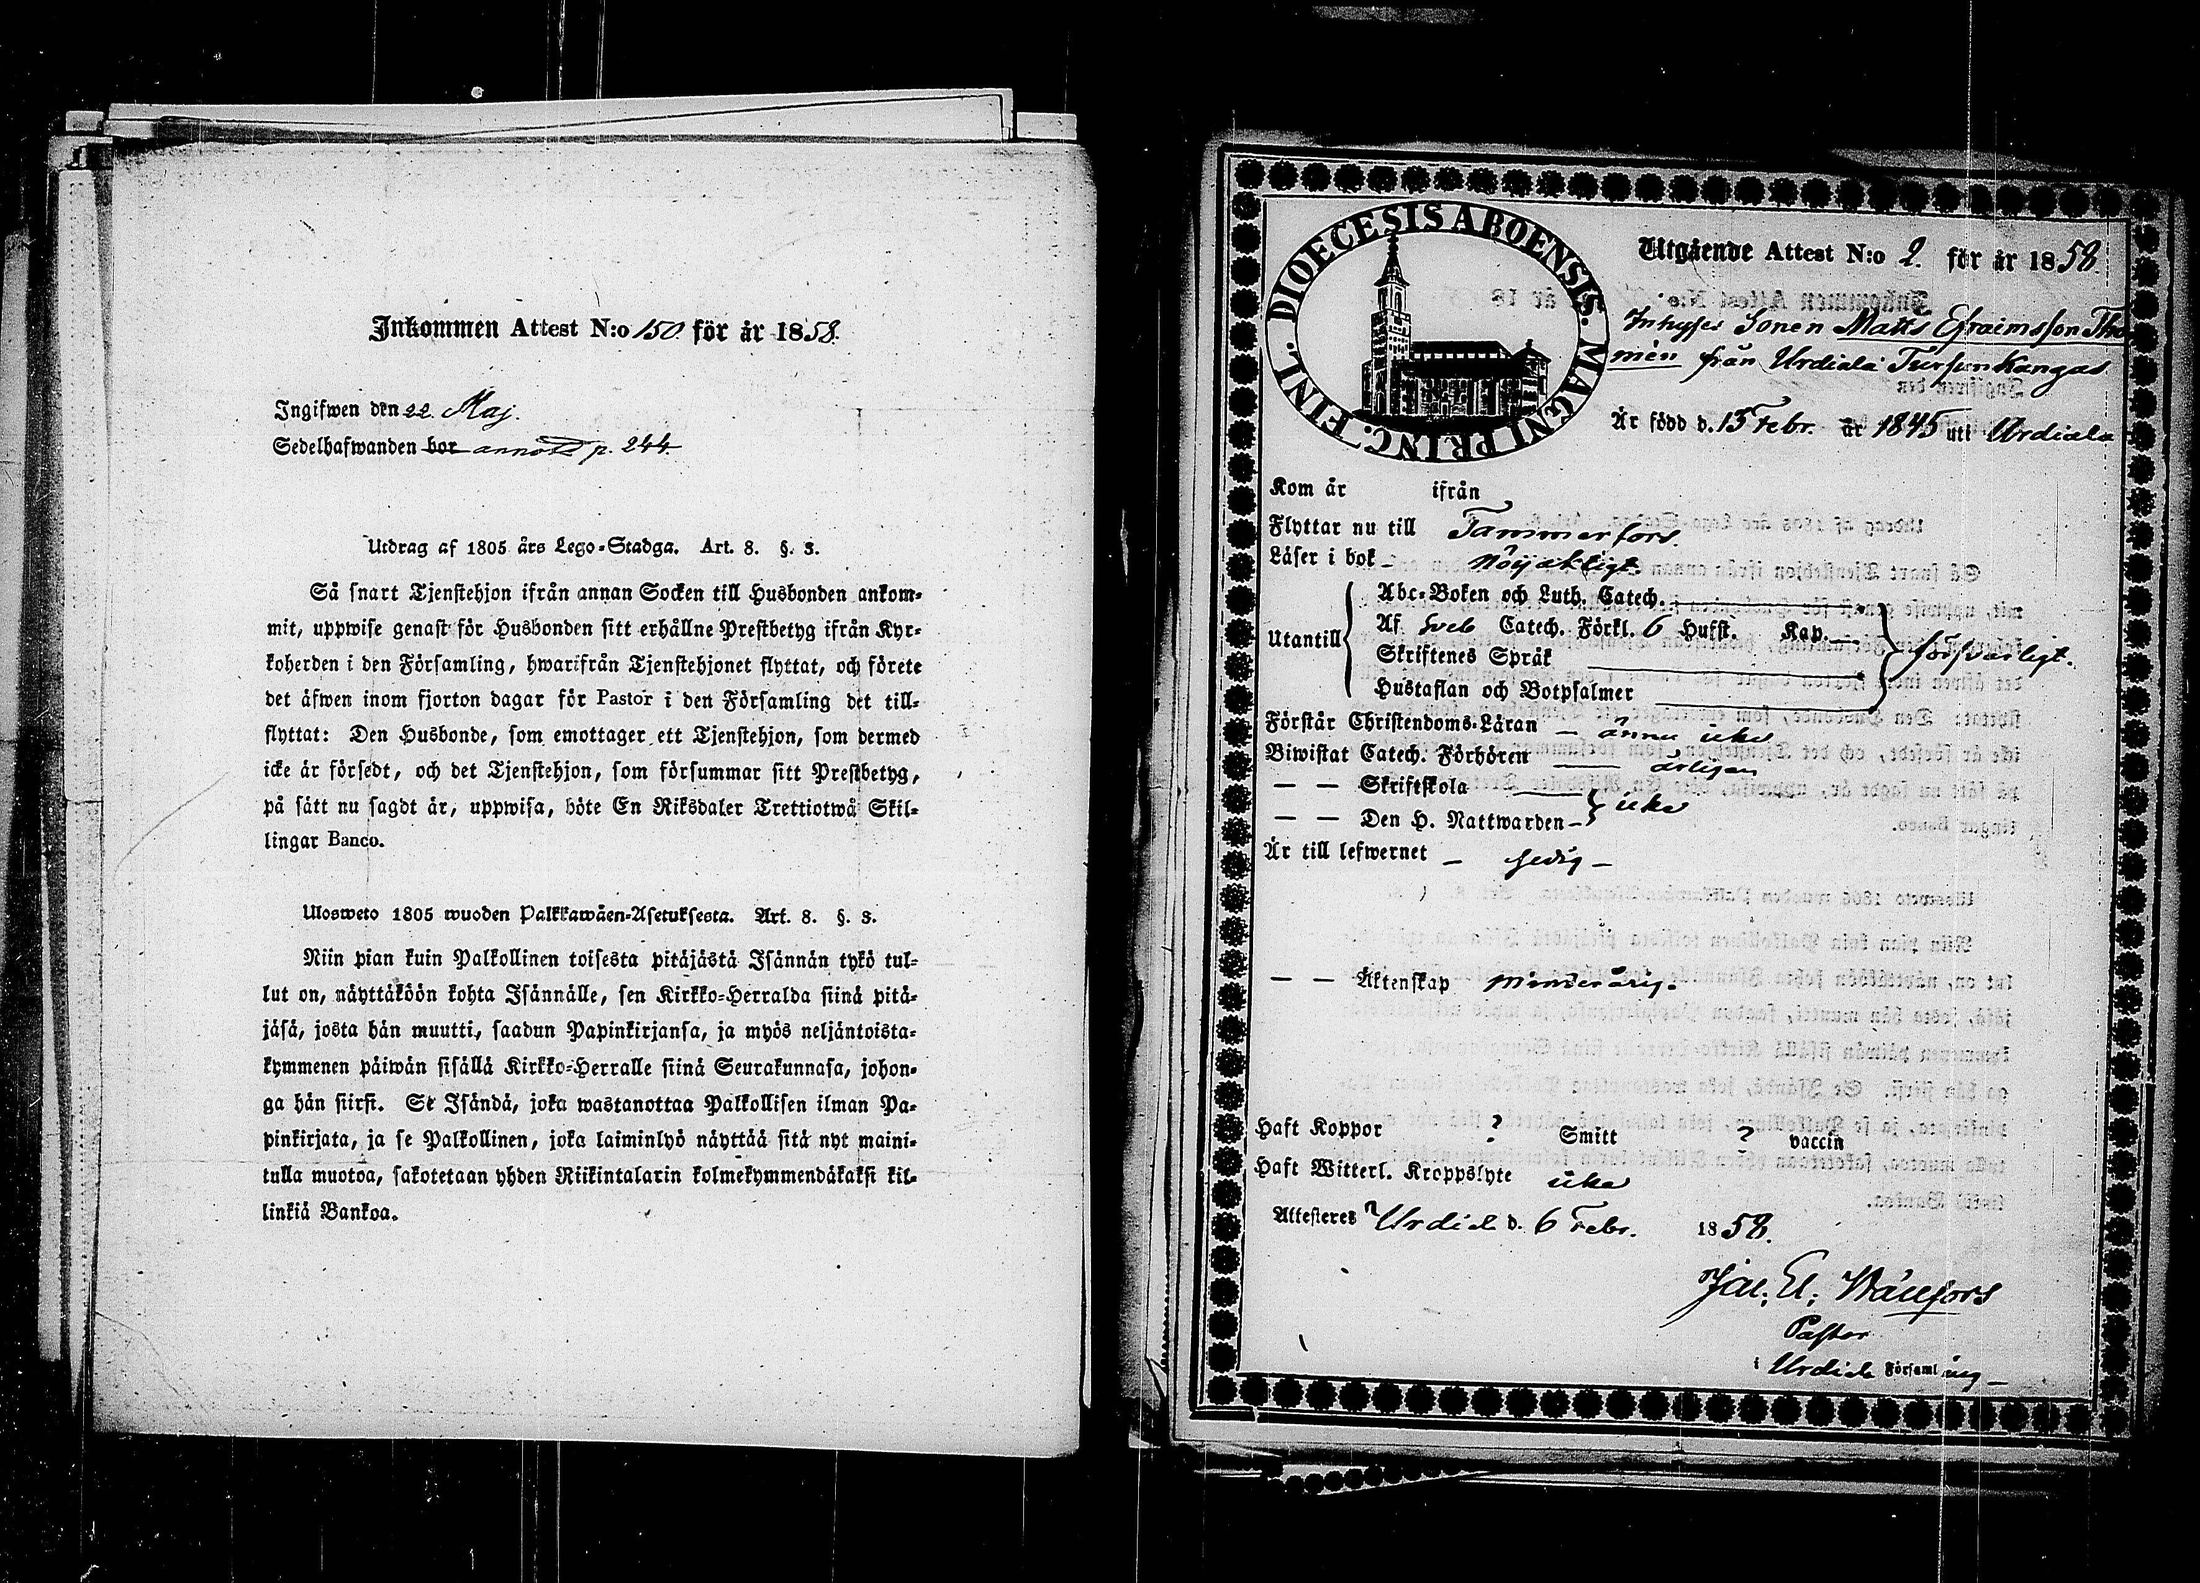 Inkommen Attest N:o 150 för år 1858.
Ingifwen den 22 Maj.
Sedelhafwanden bor annot p. 244
Utdrag af 1805 års Lego-Stadga. Art. 8. §. 3.
Så snart Tjenstehjon ifrån annan Socken till Husbonden ankom-
mit, uppwise genast för Husbonden sitt erhållne Prestbetyg ifrån Kyr-
koherden i den Församling, hwarifrån Tjenstehjonet flyttat, och förete
det äfwen inom fjorton dagar för Pastor i den Församling det till-
flyttat: Den Husbonde, som emottager ett Tjenstehjon, som dermed
icke är försedt, och det Tjenstehjon, som försummar sitt Prestbetyg,
på sätt nu sagdt är, uppwisa, böte En Riksdaler Trettiotwå Skil-
lingar Banco.
Ulosweto 1805 wuoden Palkkawäen-Asetuksesta. Art. 8. §. 3.
Niin pian kuin Palkollinen toisesta pitäjästä Isännän tykö tul-
lut on, näyttäköön kohta Isännälle, sen Kirkko-Herralda siinä pitä-
jäsä, josta hän muutti, saadun Papinkirjansa, ja myös neljäntoista-
kymmenen päiwän sisällä Kirkko-Herralle siinä Seurakunnasa, johon-
ga hän siirsi. Se Isändä, joka wastanottaa Palkollisen ilman Pa-
pinkirjata, ja se Palkollinen, joka laiminlyö näyttää sitä nyt maini-
tulla muotoa, sakotetaan yhden Riikintalarin kolmekymmendäkaksi kil-
linkiä Bankoa.
DIOECESIS ABOENSIS. MAGNI PRINC. FINL.
Utgående Attest N:o 2. för år 1858.
Inhyses Sonen Matts Efraimsson Tho
mén från Urdiala Tursunkangas
Är född d. 13 Febr. år 1845 uti Urdiala
Kom år ifrån
Flyttar nu till Tammerfors.
Läser i bok nöjaktigt.
Utantill
Abc-Boken och Luth. Catech.
Af Sveb Catech. Förkl. 6 Hufst. Kap.
Skriftenes Språk
Hustaflan och Botpsalmer
försvarligt.
Förstår Christendoms-Läran ännu icke
Biwistat Catech. Förhören årligen
— — Skriftskola
— — Den H. Nattwarden
icke
Är till lefwernet — ledig —
— — Äktenskap minderårig.
Haft Koppor ? Smitt ? vaccin
Haft Witterl. Kroppslyte icke
Attesteres Urdiala d. 6 Febr. 1858.
Pastor
i Urdiala Församling